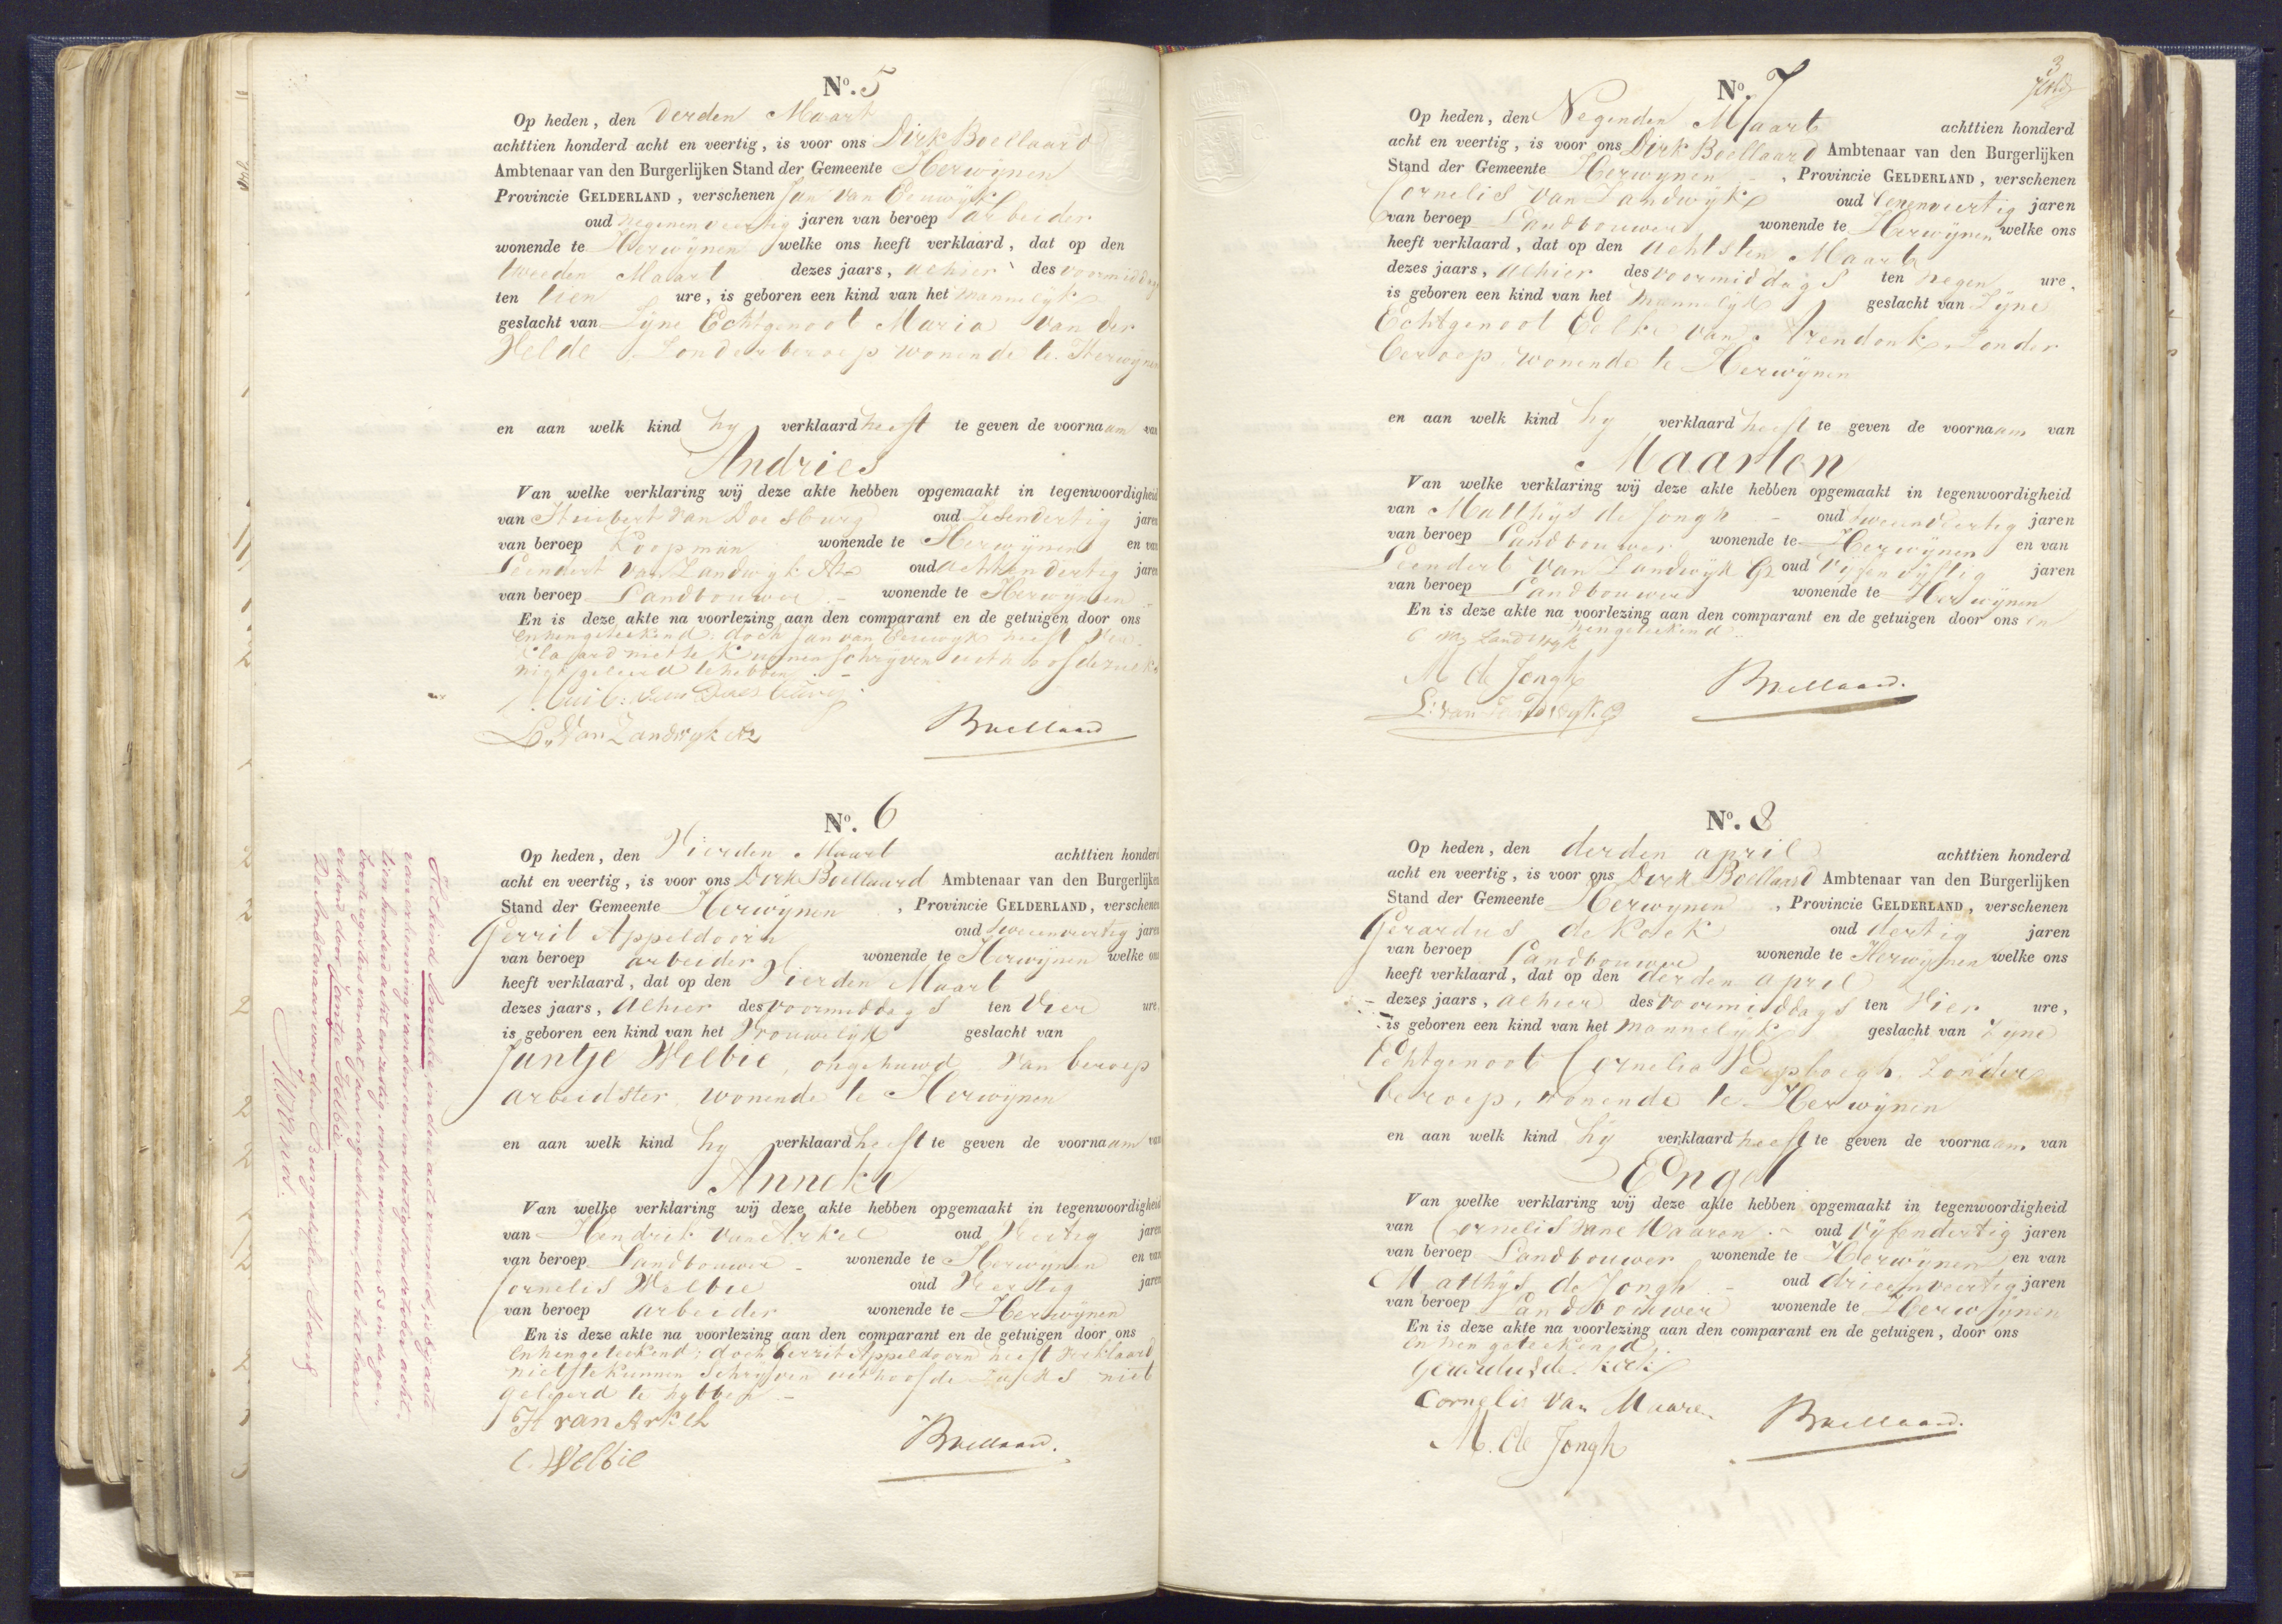 No. 5
Op heden, den derden Maart
achttien honderd acht en veertig, is voor ons Dirk Boellaard
Ambtenaar van den Burgerlijken Stand der Gemeente Herwijnen
Provincie GELDERLAND, verschenen Jan van Eeuwijk
oud negenenveertig jaren van beroep arbeider
wonende te Herwijnen welke ons heeft verklaard, dat op den
tweeden Maart dezes jaars, alhier des voormiddags
ten tien ure, is geboren een kind van het mannelijk
geslacht van Zijne Echtgenoot Maria van der
Velde Zonder beroep wonende te Herwijnen
en aan welk kind hy verklaard heeft te geven de voornaam van
Andries
Van welke verklaring wij deze akte hebben opgemaakt in tegenwoordigheid
van Huibert van Doesburg oud Zesendertig jaren
van beroep Koopman wonende te Herwijnen en van
Leendert van Zandwijk Az oud achtendertig jaren
van beroep Landbouwer - wonende te Herwijnen
En is deze akte na voorlezing aan den comparant en de getuigen door ons
en hen geteekend; doch Jan van Eeuwijk heeft ver
klaard niet te kunnen schrijven uit hoofde zulks
niet geleerd te hebben -
Huib: van Doesburg
L. Van Zandwyk Az
Boellaard
No. 6
Op heden, den Vierden Maart achttien honderd
acht en veertig, is voor ons Dirk Boellaard Ambtenaar van den Burgerlijken
Stand der Gemeente Herwijnen, Provincie GELDERLAND, verschenen
Gerrit Appeldoorn oud tweeenveertig jaren
van beroep arbeider wonende te Herwijnen welke ons
heeft verklaard, dat op den Vierden Maart
dezes jaars, alhier des voormiddags ten Vier ure,
is geboren een kind van het Vrouwelijk geslacht van
Jantje Welbie, ongehuwd van beroep
arbeidster, wonende te Herwijnen
en aan welk kind hy verklaard heeft te geven de voornaam van
Anneke
Van welke verklaring wij deze akte hebben opgemaakt in tegenwoordigheid
van Hendrik van Arkel oud Veertig jaren
van beroep Landbouwer - wonende te Herwijnen en van
Cornelis Welbie oud Veertig jaren
van beroep arbeider wonende te Herwijnen
En is deze akte na voorlezing aan den comparant en de getuigen door ons
en hen geteekend; doch Gerrit Appeldoorn heeft verklaard
niet te kunnen schrijven uit hoofde zulks niet
geleerd te hebben -
H van Arkel
C. Welbie
Boellaard.
Het kind Anneke, in deze acte vermeld, is by acte
van erkenning van den een en dertigsten october acht-
tien honderd acht en zestig, onder nommer 53 in de ge-
boorteregisters van dat jaar ingeschreven, als het hare
erkend door Jantje Welbie
De Ambtenaar van den Burgerlijken Stand
No. 7
Op heden, den Negenden Maart achttien honderd
acht en veertig, is voor ons Dirk Boellaard Ambtenaar van den Burgerlijken
Stand der Gemeente Herwijnen -, Provincie GELDERLAND, verschenen
Cornelis van Zandwijk oud Eenenveertig jaren
van beroep Landbouwer wonende te Herwijnen welke ons
heeft verklaard, dat op den achtsten Maart
dezes jaars, alhier des voormiddags ten negen ure,
is geboren een kind van het mannelijk geslacht van Zijne
Echtgenoot Eelke van Arendonk, Zonder
beroep, wonende te Herwijnen
en aan welk kind hy verklaard heeft te geven de voornaam van
Maarten
Van welke verklaring wij deze akte hebben opgemaakt in tegenwoordigheid
van Matthijs de Jongh - oud tweeenveertig jaren
van beroep Landbouwer wonende te Herwijnen en van
Leendert van Zandwijk Gz oud Vijfenvijftig jaren
van beroep Landbouwer wonende te Herwijnen
En is deze akte na voorlezing aan den comparant en de getuigen door ons en
hen geteekend.
C van Zandwyk
M de Jongh
L: van Zandwyk. Gz
Boellaard.
No. 8
Op heden, den derden april achttien honderd
acht en veertig, is voor ons Dirk Boellaard Ambtenaar van den Burgerlijken
Stand der Gemeente Herwijnen, Provincie GELDERLAND, verschenen
Gerardus de Kock oud dertig jaren
van beroep Landbouwer wonende te Herwijnen welke ons
heeft verklaard, dat op den derden april
dezes jaars, alhier des voormiddags ten Vier ure,
is geboren een kind van het mannelijk geslacht van Zijne
Echtgenoot Cornelia zonder
beroep, wonende te Herwijnen
en aan welk kind hij verklaard heeft te geven de voornaam van
Engel
Van welke verklaring wij deze akte hebben opgemaakt in tegenwoordigheid
van Cornelis van Maaren - oud Vijfendertig jaren
van beroep Landbouwer wonende te Herwijnen en van
Matthijs de Jongh - oud drieenveertig jaren
van beroep Landbouwer wonende te Herwijnen
En is deze akte na voorlezing aan den comparant en de getuigen, door ons
en hen geteekend.
Gerardus de Kock
Cornelis van Maaren
M. de Jongh
Boellaard.